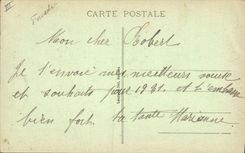 III
CARTE POSTALE
Mon cher Robert
Je t'envoie mes meilleurs vœux
et souhaits pour 1931. et t'embrasse
bien fort ta tante Marianne.